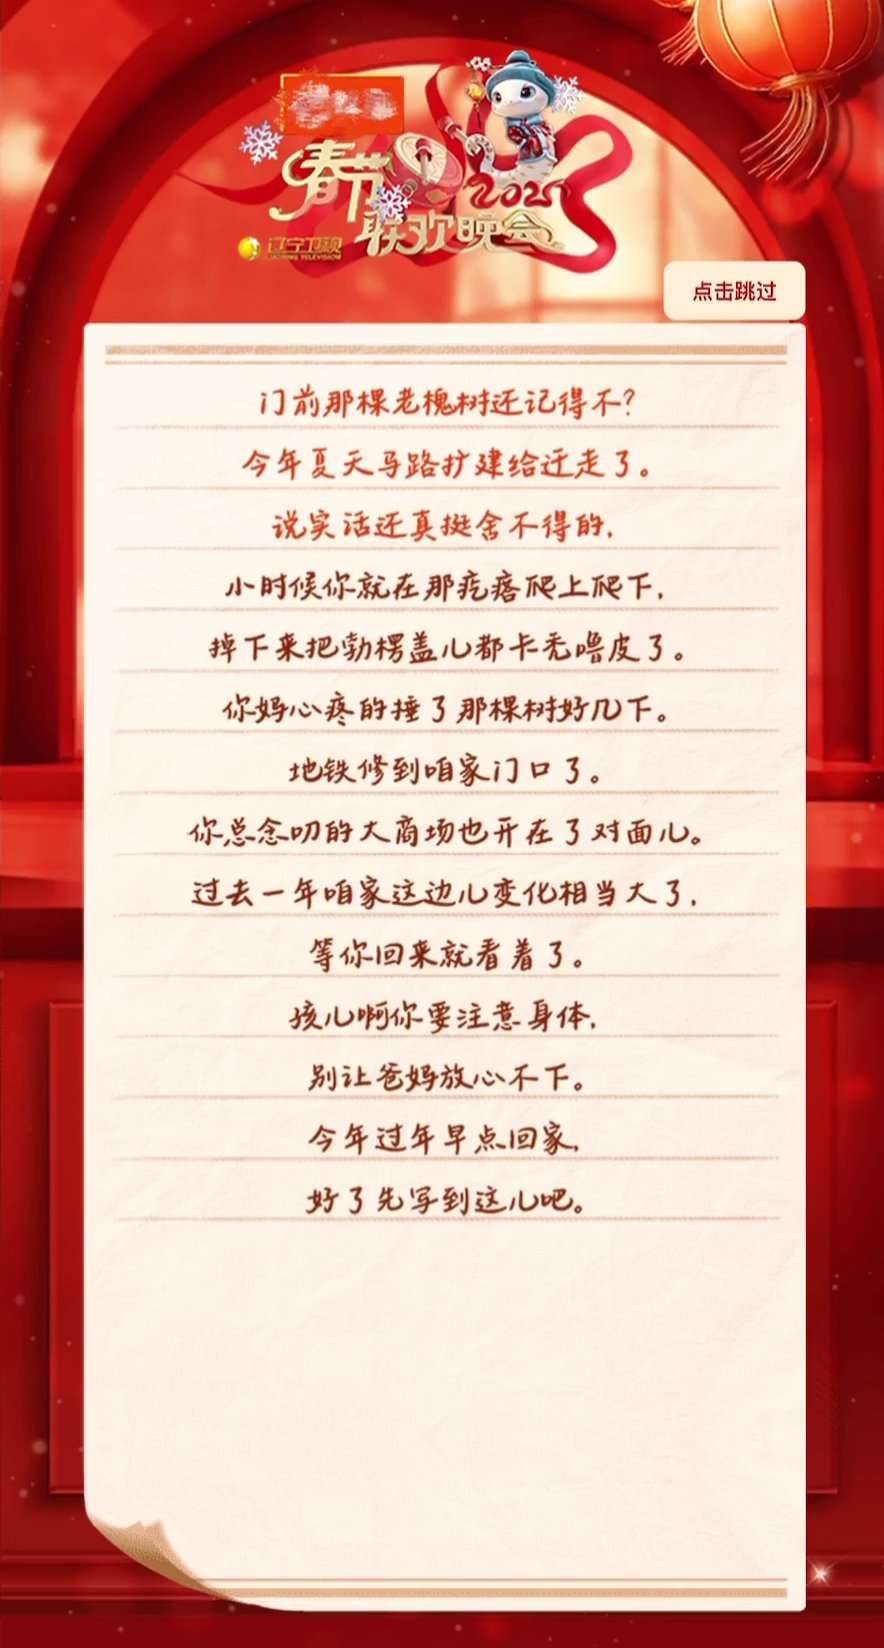 春节
2025
联欢晚会
辽宁卫视
LIAONING TELEVISION
点击跳过
门前那棵老槐树还记得不?
今年夏天马路扩建给迁走了。
说实话还真挺舍不得的,
小时候你就在那疙瘩爬上爬下,
掉下来把勃楞盖儿都卡秃噜皮了。
你妈心疼的捶了那棵树好几下。
地铁修到咱家门口了。
你总念叨的大商场也开在了对面儿。
过去一年咱家这边儿变化相当大了,
等你回来就看着了。
孩儿啊你要注意身体,
别让爸妈放心不下。
今年过年早点回家,
好了先写到这儿吧。